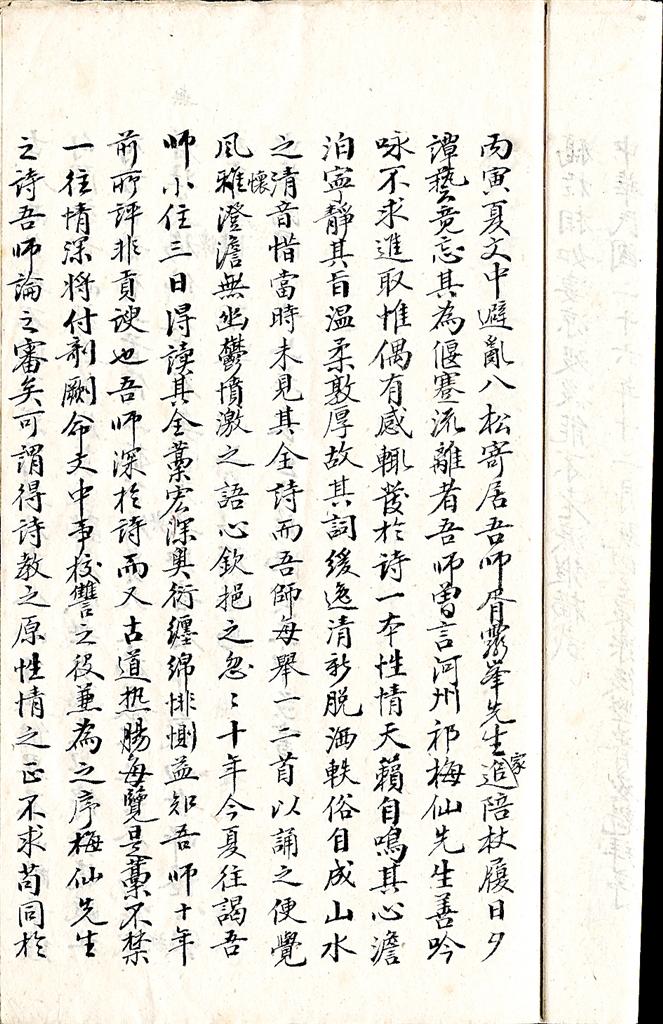 丙寅夏文中避亂八松寄居吾師胥霧峯先生家追陪杖履日夕
譚藝竟忘其為偃蹇流離者吾師曾言河州祁梅仙先生善吟
咏不求進取惟偶有感輒發於詩一本性情天籟自鳴其心澹
泊寧靜其旨溫柔敦厚故其詞緩逸清新脫洒軼俗自成山水
之清音惜當時未見其全詩而吾師每舉一二首以誦之便覺
風雅懷澄澹無幽鬱憤激之語心欽挹之忽〻十年今夏往謁吾
師小住三日得讀其全藁宏深奧衍纏綿悱惻益知吾師十年
前所評非貢諛也吾師深於詩而又古道热腸每覽是藁不禁
一往情深將付剞劂命文中事校讐之役兼為之序梅仙先生
之詩吾師論之審矣可謂得詩教之原性情之正不求苟同於
中華民國